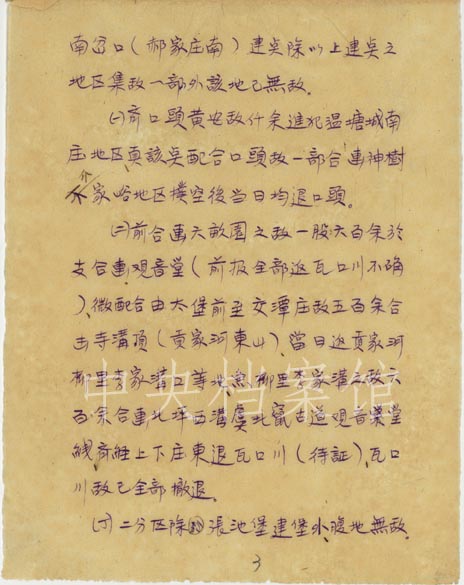 南岔口（郝家庄南）建㚑除以上建㚑之
地区集敌一部外該地已無敌.
㈠ 前口頭黄安敌什余進犯温塘城南
庄地区頁該㚑配合口頭敌一部合击神樹
个家峪地区撲空後当日均退口頭。
㈡前合击六畝園之敌一股六百余於
支合击观音堂（前报全部返瓦口川不确
）、微配合由大堡前至交潭庄敌五百余合
击寺溝頂（貢家河東山）、當日返貢家河
柳里李家溝口等地
柳里李家溝之敌六
百余合击北坪西溝
北竄古道观音堂
線育經上下庄東退瓦口川（待証）、瓦口
川敌已全部撤退。
二分区除 張池堡建堡外、腹地無敌.
中央档案馆
3